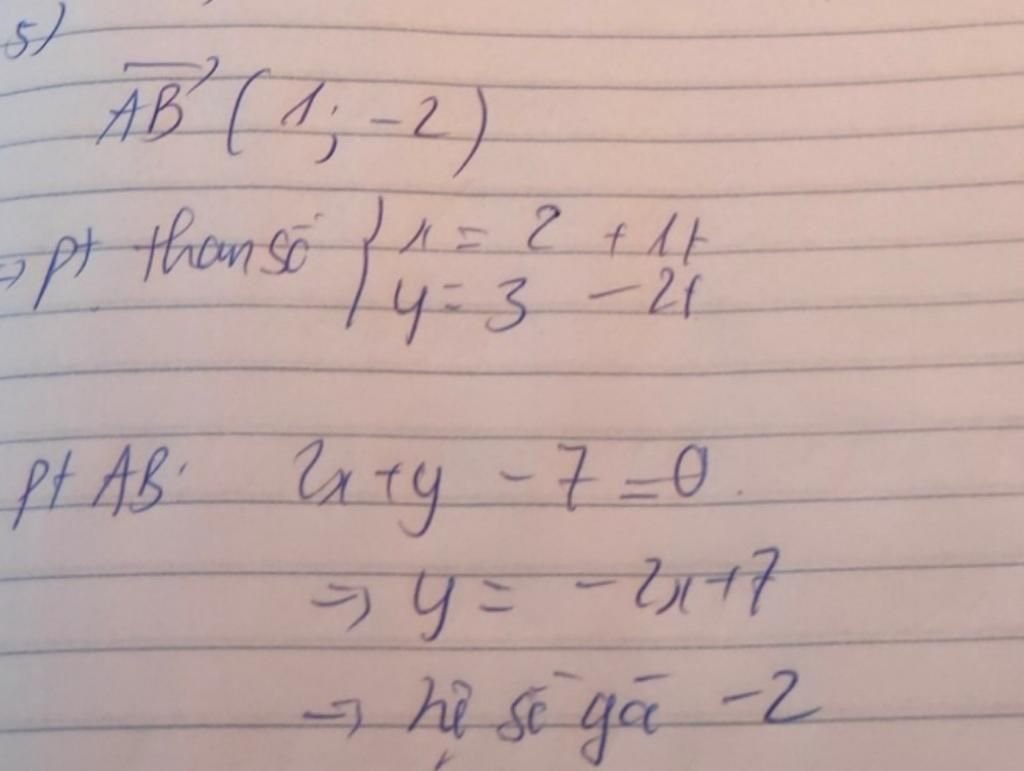 5)
AB (1; -2)
=> pt tham số { x = 2 + 1t
y = 3 - 2t
pt AB: 2x + y - 7 = 0.
=> y = -2x + 7
=> hệ số gã -2